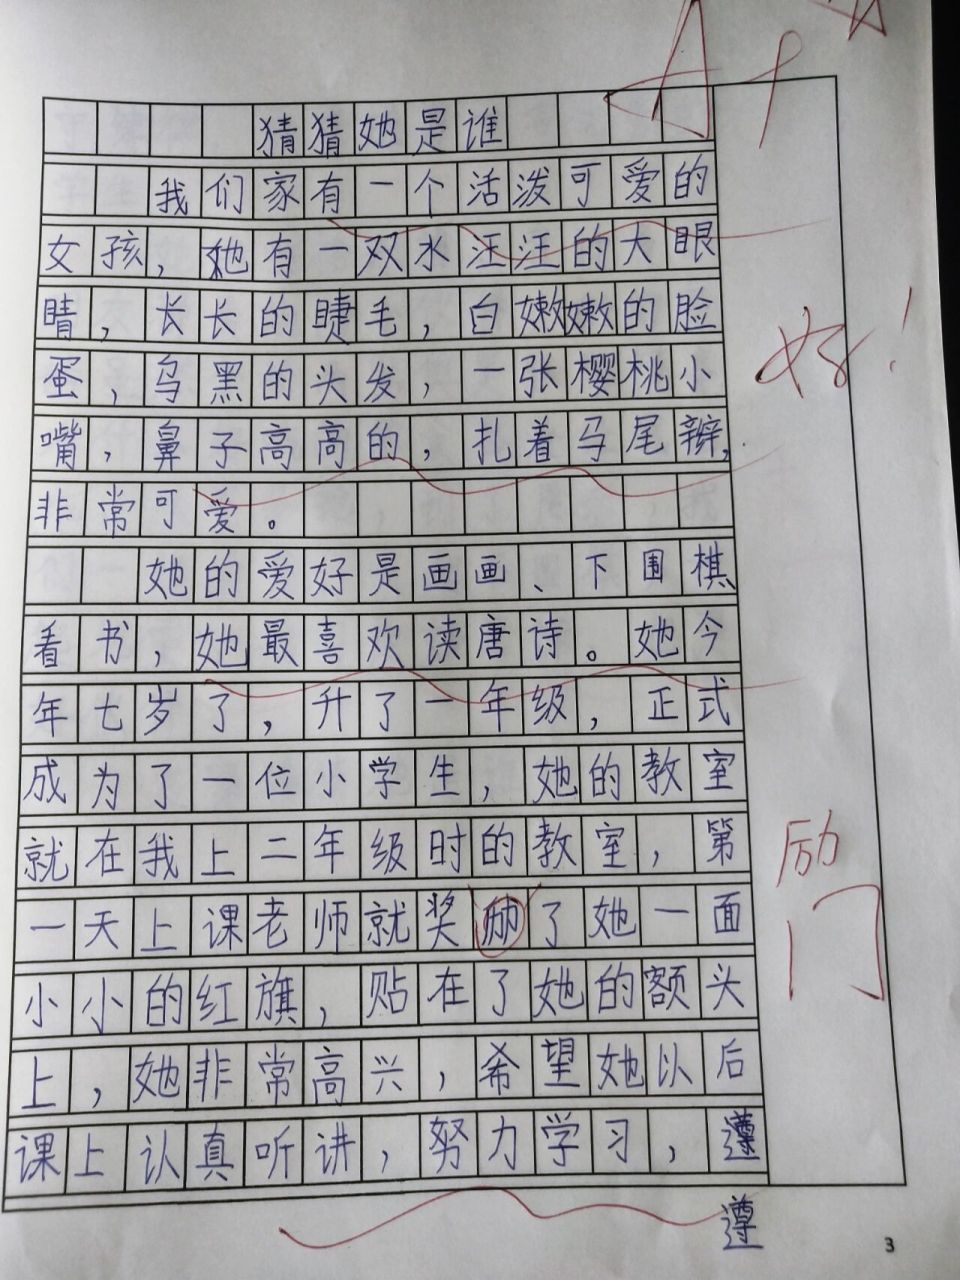 A+
猜猜她是谁
我们家有一个活泼可爱的
女孩，她有一双水汪汪的大眼
睛，长长的睫毛，白嫩嫩的脸
好！
蛋，乌黑的头发，一张樱桃小
嘴，鼻子高高的，扎着马尾辫，
非常可爱。
她的爱好是画画、下围棋
看书，她最喜欢读唐诗。她今
年七岁了，升了一年级，正式
成为了一位小学生，她的教室
就在我上二年级时的教室，第
励
一天上课老师就奖了她一面
小小的红旗，贴在了她的额头
上，她非常高兴，希望她以后
课上认真听讲，努力学习，遵
遵
3